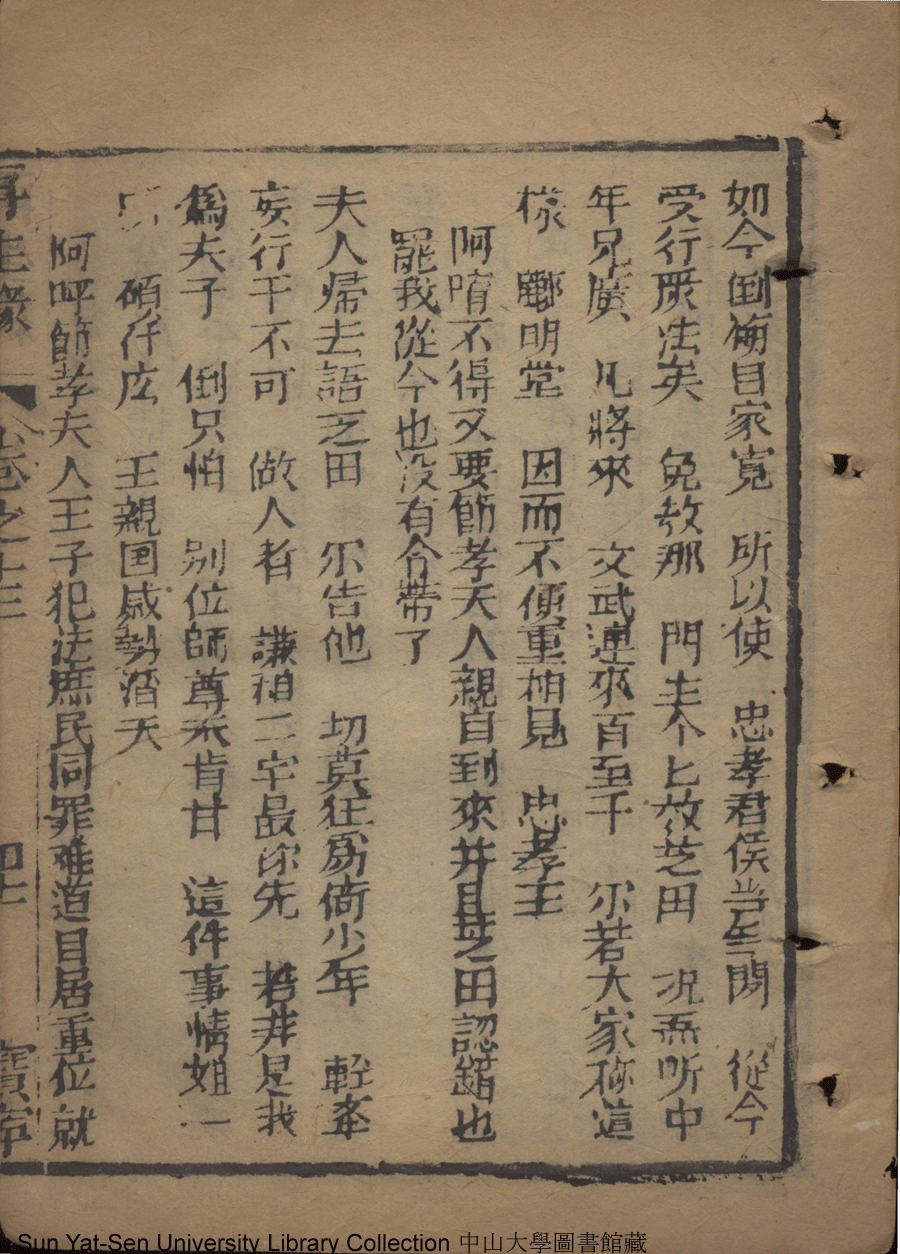 如今倒悔自家寬 所以使 忠孝君侯当年閙 從今
受行厳法矣 免敎那 門圭个匕效芝田 况吾所中
年兄廣 凡將來 文武運來百至千 尔若大家称這
樣 酈明堂 因而不便重相見 忠孝王
阿唷不得又要節孝夫人親自到來并且芝田認錯也
罷我從今也没有令帶了
夫人帰去語芝田 尔告他 切莫狂爲倚少年 輊率
妄行干不可 做人者 謙和二字最你先 若非是我
爲夫子 倒只怕 别位師尊不肯甘 這件事情姐一
碩仟広 王親国戚勢滔天
阿呀節孝夫人王子犯法庶民同罪难道自居重位就
再生緣 卷之十三 四七 寳寧
Sun Yat-Sen University Library Collection 中山大學圖書館藏